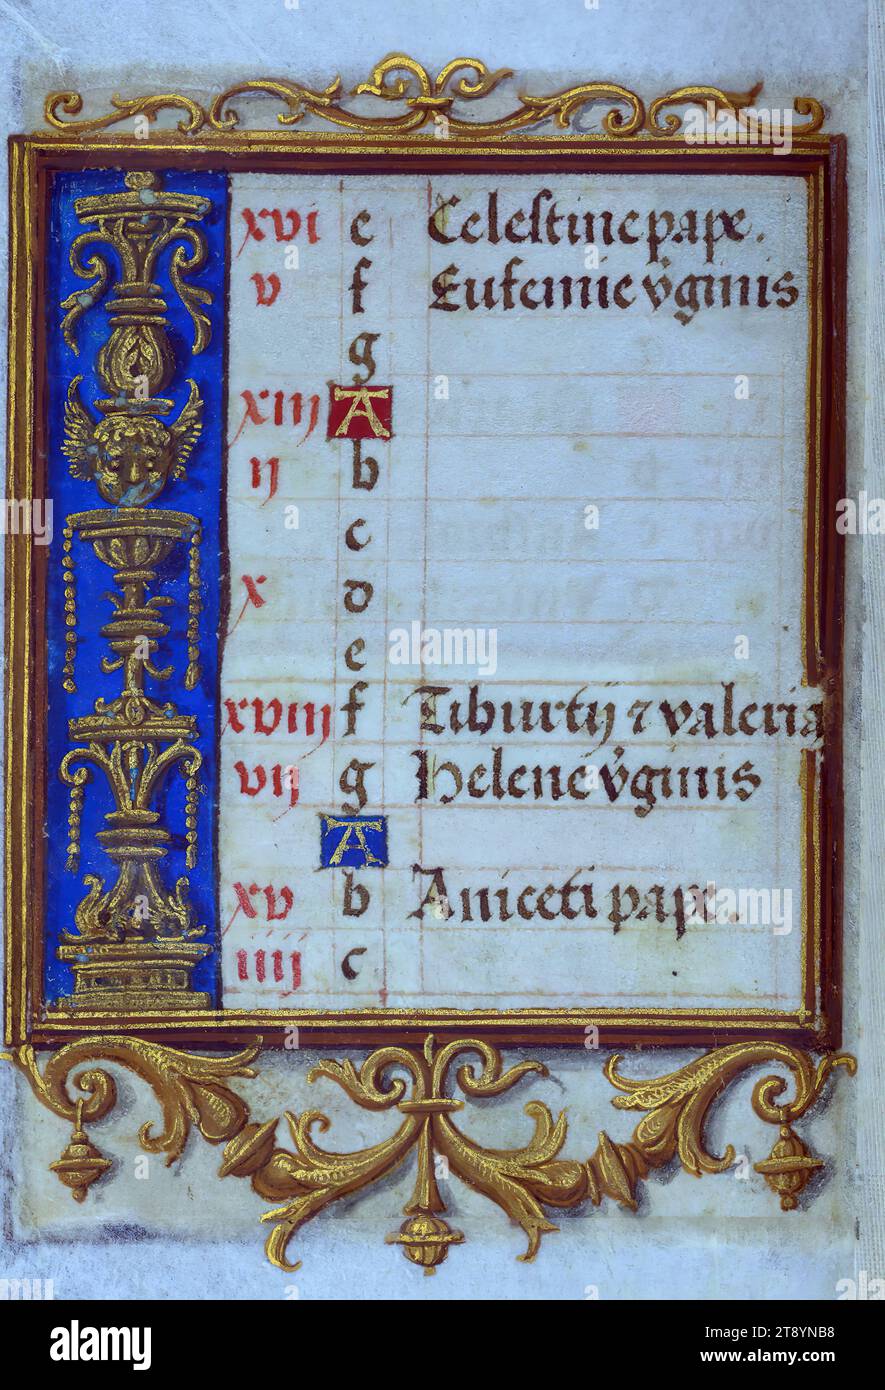 xvi e Celestine pape.
v f Eufemie v̄ginis
g
xiij A
ij b
c
x d
e
xviij f Tiburtij ⁊ valeria
vij g Helene v̄ginis
A
xv b Aniceti pape.
iiij c
alamy
Image ID: 2T8YNB8
www.alamy.com